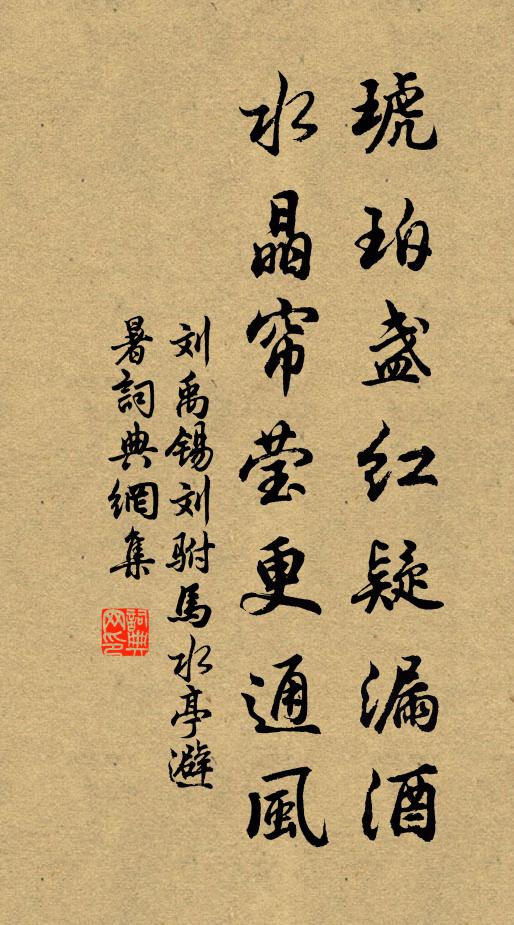 琥珀盏红疑漏酒
水晶帘莹更通風
刘禹锡刘駙馬水亭避
暑詞典網集
詞典网印